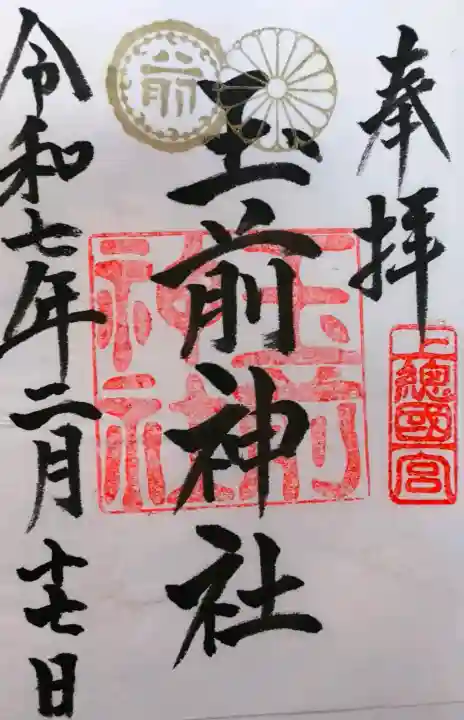 奉拝
上總國一宮
前
玉前神社
玉前神社
令和七年二月十七日